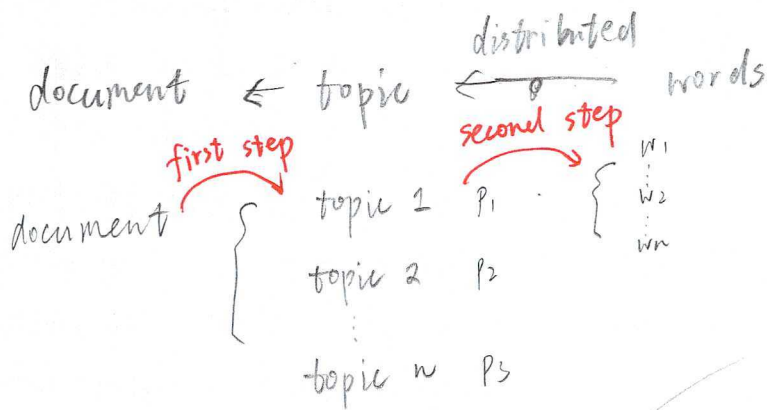 distributed
document ← topic ← words
first step
second step
w1
document
topic 1 P1
w2
wn
topic 2 P2
topic n P3